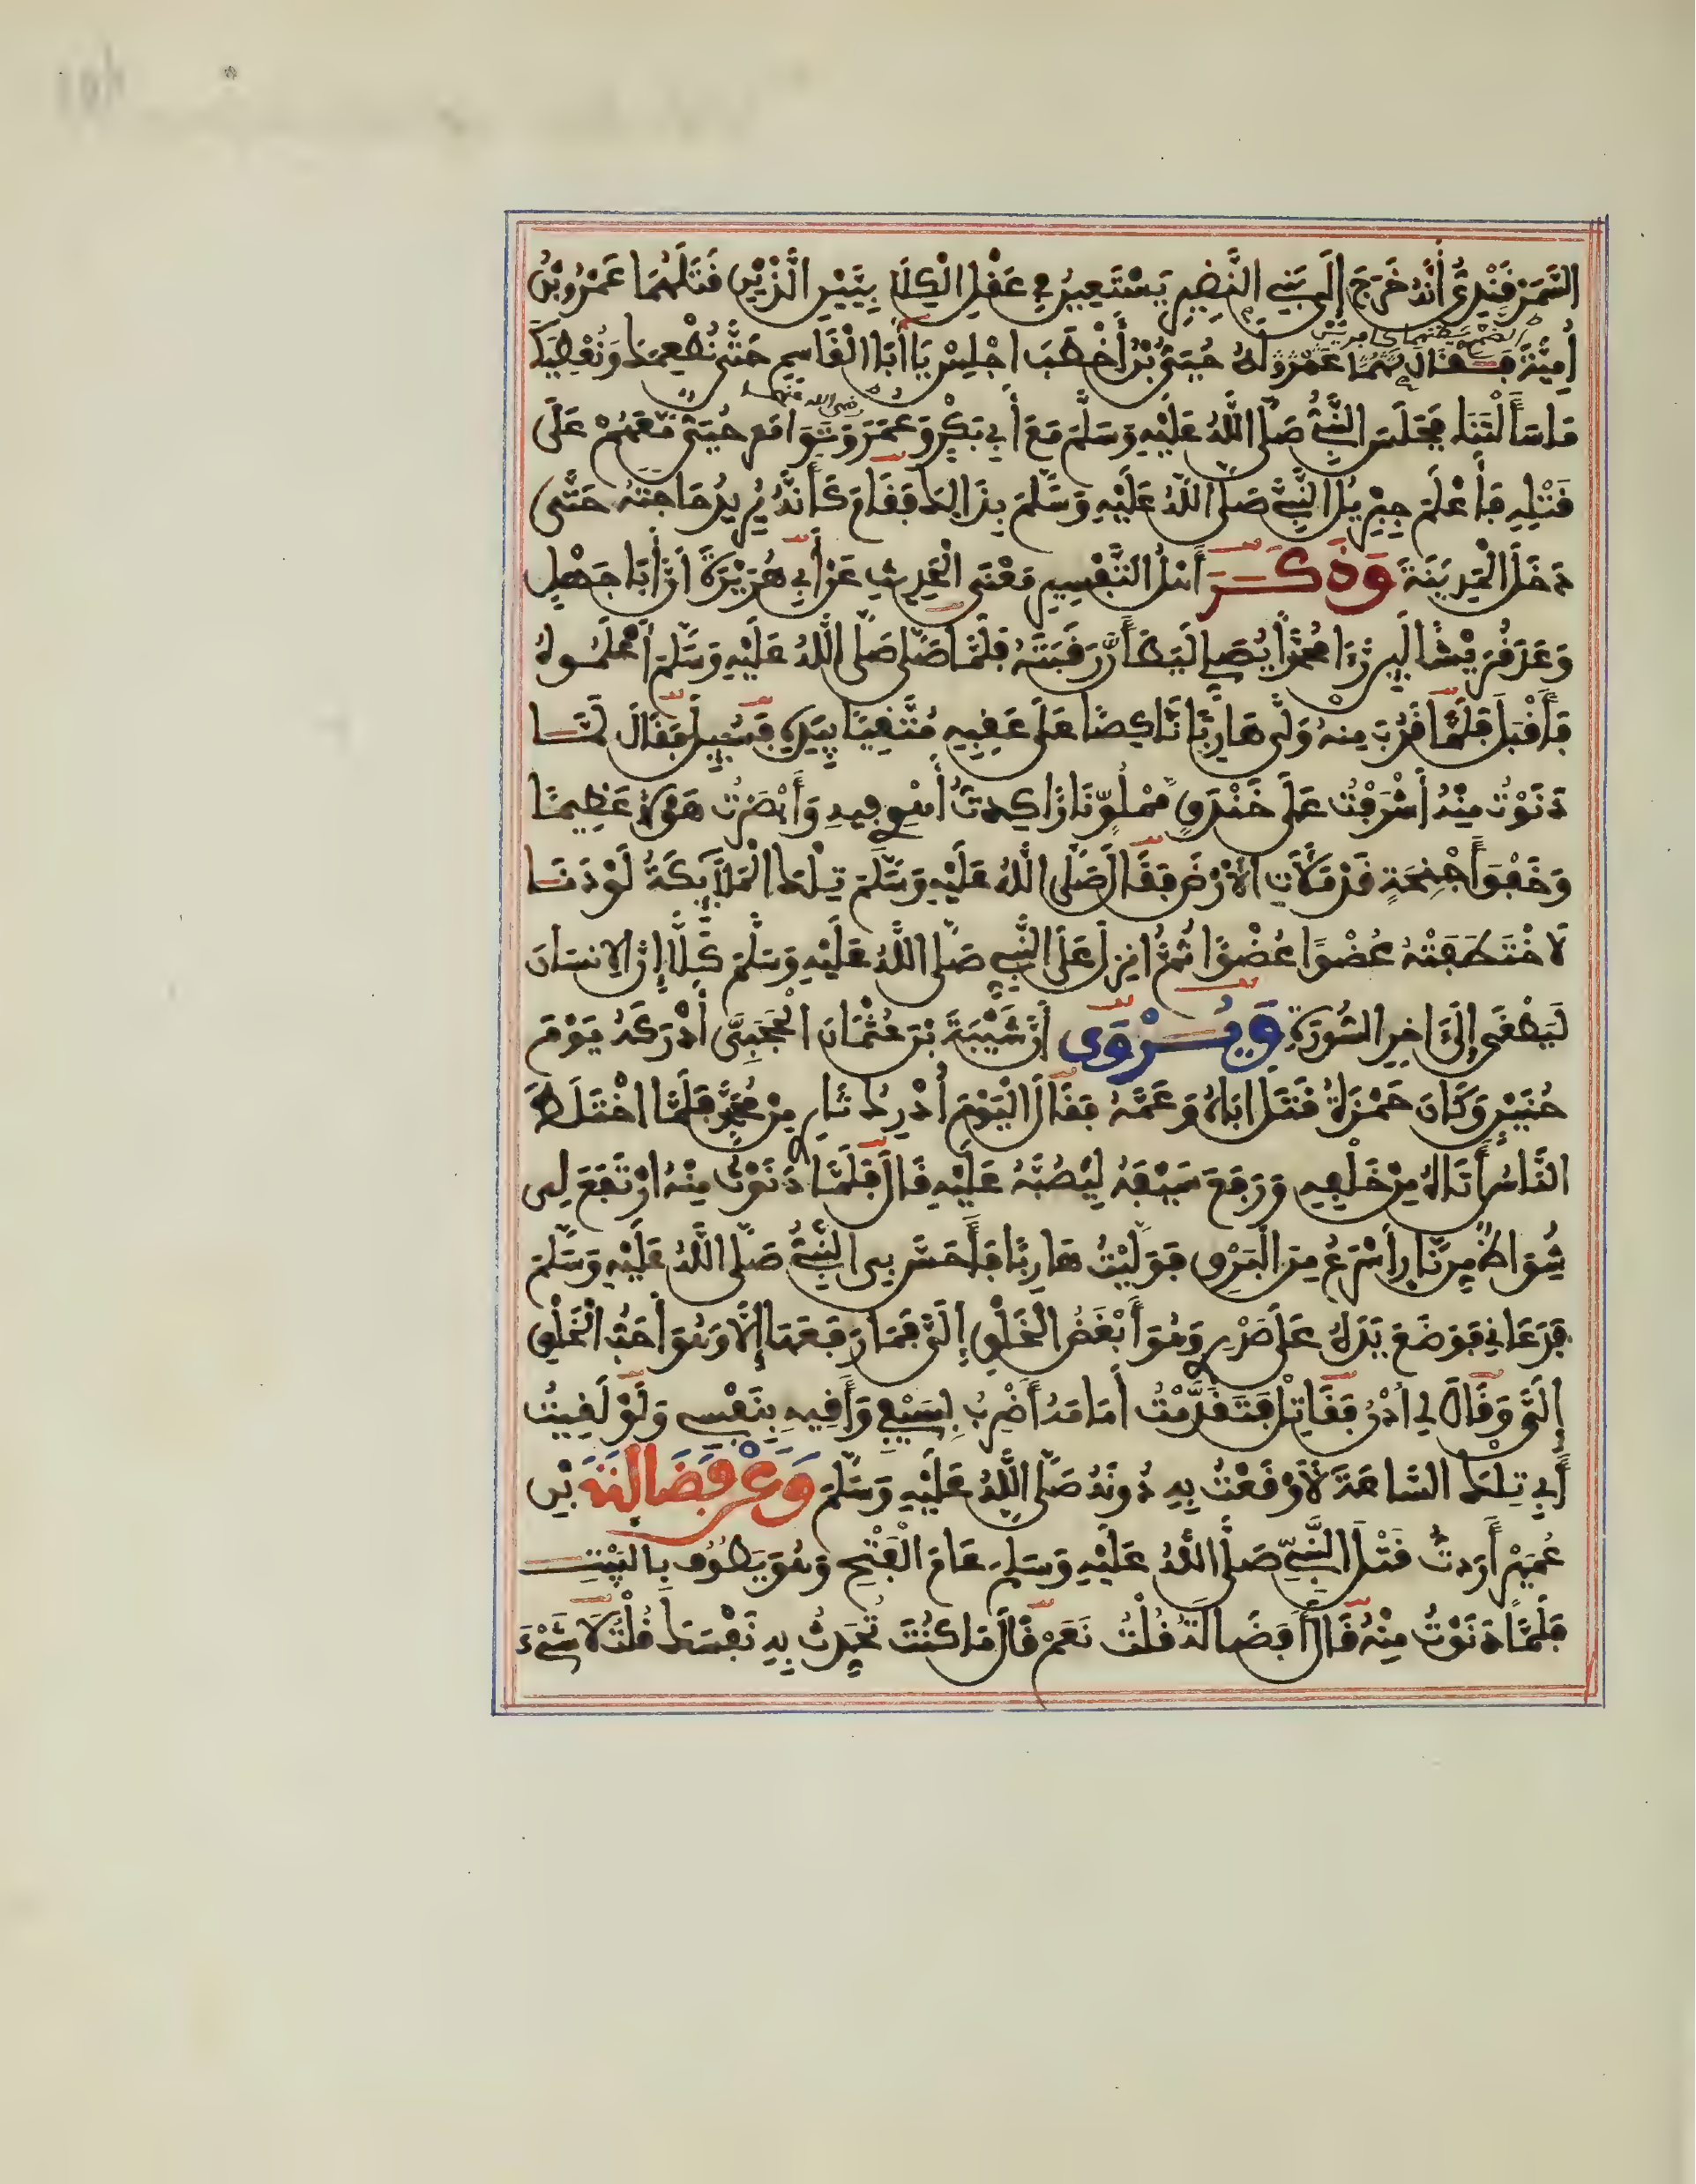 السَّمَرْقَنْدِيُّ أَنَّهُ خَرَجَ إِلَى بَنِي النَّضِيرِ يَسْتَعِينُ فِي عَقْلِ الْكِلَابِيَّيْنِ الَّذَيْنِ قَتَلَهُمَا عَمْرُو بْنُ
أُمَيَّةَ فَقَالَ لَهُ حُيَيُّ بْنُ أَخْطَبَ اجْلِسْ يَا أَبَا الْقَاسِمِ حَتَّى نُطْعِمَكَ وَنُعْطِيَكَ
مَا سَأَلْتَنَا فَجَلَسَ النَّبِيُّ صَلَّى اللَّهُ عَلَيْهِ وَسَلَّمَ مَعَ أَبِي بَكْرٍ وَعُمَرَ رضي الله عنهما وَتَوَامَرَ حُيَيٌّ مَعَهُمْ عَلَى
قَتْلِهِ فَأَعْلَمَ جِبْرِيلُ النَّبِيَّ صَلَّى اللَّهُ عَلَيْهِ وَسَلَّمَ بِذَالِكَ فَقَامَ كَأَنَّهُ يُرِيدُ حَاجَتَهُ حَتَّى
دَخَلَ الْمَدِينَةَ وَذَكَرَ أَهْلُ التَّفْسِيرِ مَعْنَى الْحَدِيثِ عَنْ أَبِي هُرَيْرَةَ أَنَّ أَبَا جَهْلٍ
وَعَدَ قُرَيْشًا لَئِنْ رَءَا مُحَمَّدًا يُصَلِّي لَيَطَأَنَّ رَقَبَتَهُ فَلَمَّا صَلَّى صَلَّى اللَّهُ عَلَيْهِ وَسَلَّمَ أَعْلَمُوهُ
فَأَقْبَلَ فَلَمَّا قَرُبَ مِنْهُ وَلَّى هَارِبًا نَاكِصًا عَلَى عَقِبَيْهِ مُتَّقِيًا بِيَدَيْهِ فَسُئِلَ فَقَالَ لَمَّا
دَنَوْتُ مِنْهُ أَشْرَفْتُ عَلَى خَنْدَقٍ مَمْلُوٍّ نَارًا كِدتُّ أَهْوِي فِيهِ وَأَبْصَرْتُ هَوْلًا عَظِيمًا
وَخَفْقَ أَجْنِحَةٍ قَدْ مَلَأَتِ الْأَرْضَ فَقَالَ صَلَّى اللَّهُ عَلَيْهِ وَسَلَّمَ تِلْكَ الْمَلَائِكَةُ لَوْ دَنَا
لَاخْتَطَفَتْهُ عُضْوًا عُضْوًا ثُمَّ انزِلَ عَلَى النَّبِيِّ صَلَّى اللَّهُ عَلَيْهِ وَسَلَّمَ كَلَّا إِنَّ الِانسَانَ
لَيَطْغَى إِلَى ءَاخِرِ السُّورَةِ وَيُرْوَى أَنَّ شَيْبَةَ بْنَ عُثْمَانَ الْحَجَبِيَّ أَدْرَكَهُ يَوْمَ
حُنَيْنٍ وَكَانَ حَمْزَةُ قَتَلَ ابَاهُ وَعَمَّهُ فَقَالَ الْيَوْمَ أُدْرِكُ ثَارِي مِنْ مُحَمَّدٍ فَلَمَّا اخْتَلَطَ
النَّاسُ أَتَاهُ مِنْ خَلْفِهِ وَرَفَعَ سَيْفَهُ لِيَصُبَّهُ عَلَيْهِ قَالَ فَلَمَّا دَنَوْتُ مِنْهُ ارْتَفَعَ لِي
شُوَاظٌ مِن نَّارٍ أَسْرَعُ مِنَ الْبَرْقِ فَوَلَّيْتُ هَارِبًا فَأَحَسَّ بِي النَّبِيُّ صَلَّى اللَّهُ عَلَيْهِ وَسَلَّمَ
فَدَعَانِي فَوَضَعَ يَدَهُ عَلَى صَدْرِي وَهُوَ أَبْغَضُ الْخَلْقِ إِلَيَّ فَمَا رَفَعَهَا إِلَّا وَهُوَ أَحَبُّ الْخَلْقِ
إِلَيَّ وَقَالَ لِي ادْنُ فَقَاتِلْ فَتَقَدَّمْتُ أَمَامَهُ أَضْرِبُ بِسَيْفِي وَأَقِيهِ بِنَفْسِي وَلَوْ لَقِيتُ
أَبِي تِلْكَ السَّاعَةَ لَأَوْقَعْتُ بِهِ دُونَهُ صَلَّى اللَّهُ عَلَيْهِ وَسَلَّمَ وَعَنْ فَضَالَةَ بْنِ
عُمَيْرٍ أَرَدتُّ قَتْلَ النَّبِيِّ صَلَّى اللَّهُ عَلَيْهِ وَسَلَّمَ عَامَ الْفَتْحِ وَهُوَ يَطُوفُ بِالْبَيْتِ
فَلَمَّا دَنَوْتُ مِنْهُ قَالَ أَفَضَالَةُ قُلْتُ نَعَمْ قَالَ مَا كُنْتَ تُحَدِّثُ بِهِ نَفْسَكَ قُلْتُ لَا شَيْءَ